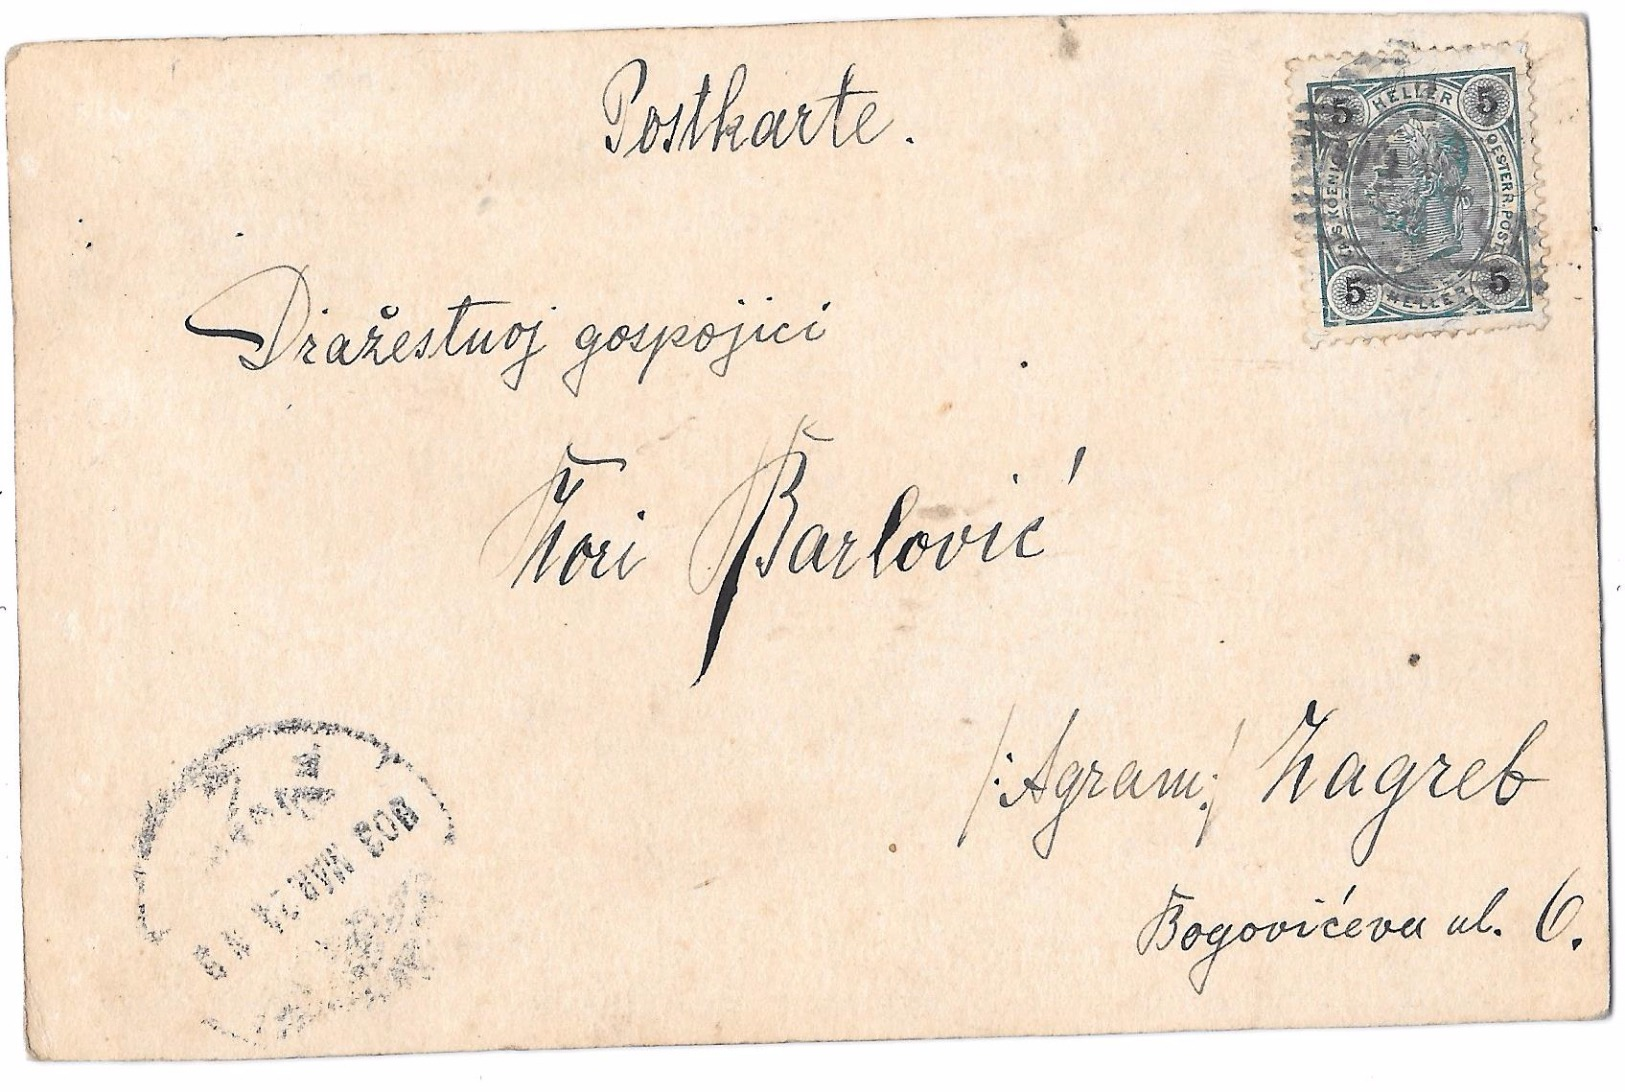 Postkarte.
5 HELLER 5
OESTERR. POST
5 HELLER 5
Dražestnoj gospojici
Zori Barlović
/:Agram:/ Zagreb
Bogovićeva ul. 6.
903 MAR 24